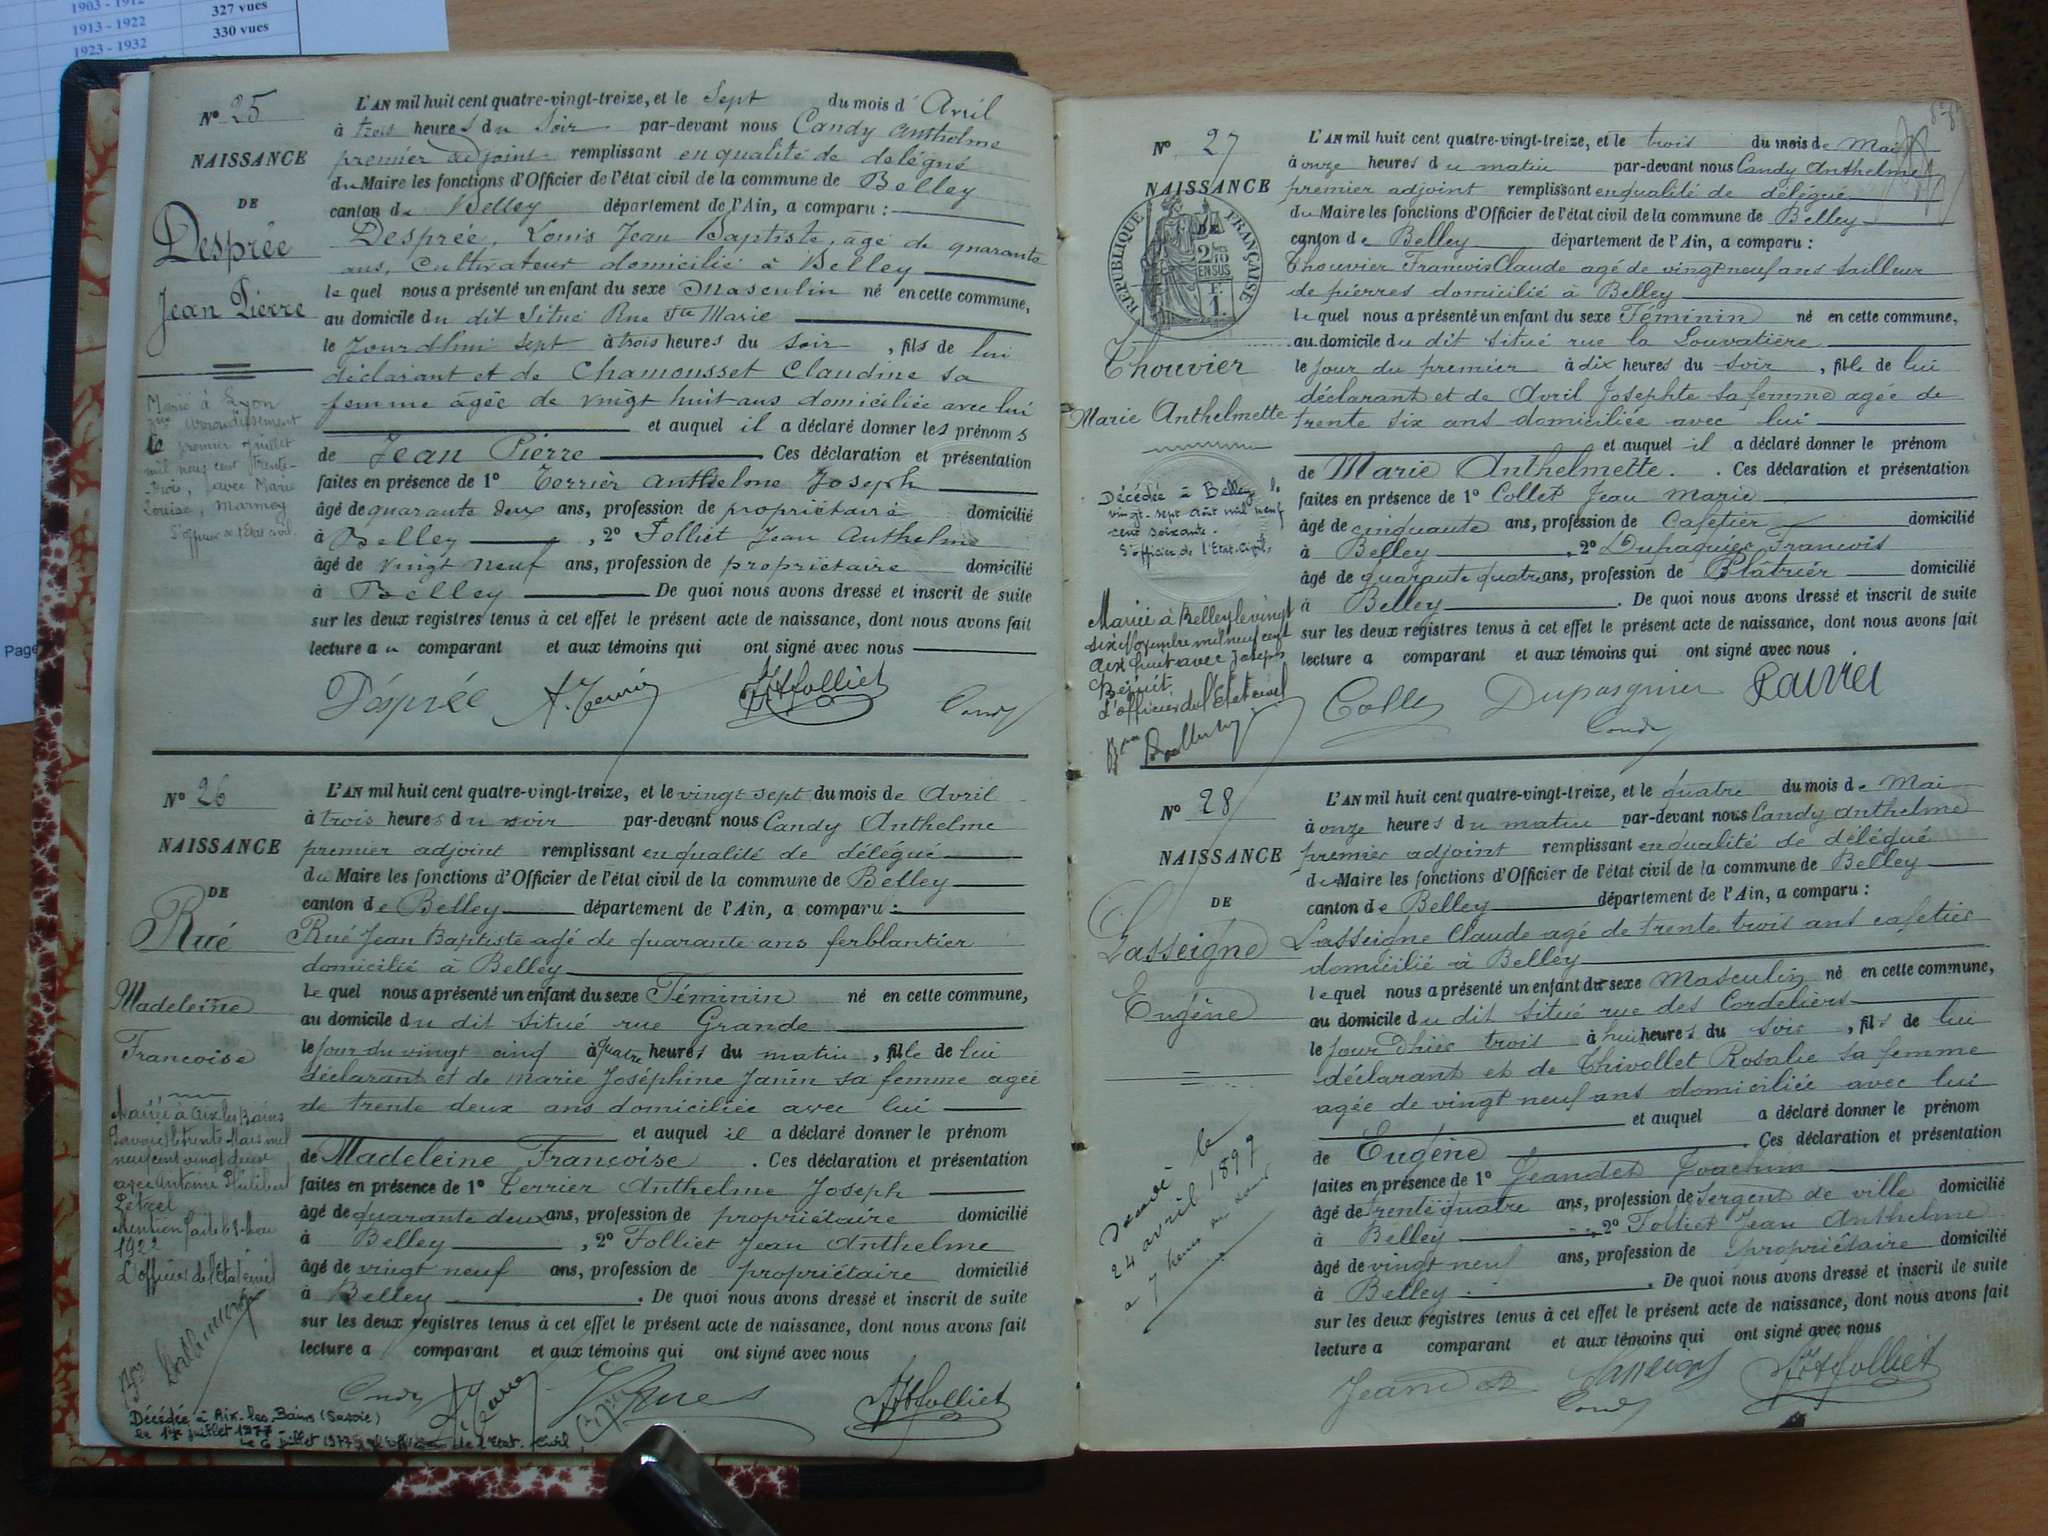 1903 - 1912
327 vues
1913 - 1922
330 vues
1923 - 1932
Page
N° 25
NAISSANCE
DE
Desprée
Jean Pierre
Marié à Lyon
arrondissement
le premier Juillet
mil neuf cent trente-
-trois, avec Marie
Louise, Marmey
L'officier de l'Etat civil
L'AN mil huit cent quatre-vingt-treize, et le Sept du mois d'Avril
à trois heures du Soir par-devant nous Candy Anthelme
premier adjoint remplissant en qualité de délégué
du Maire les fonctions d'Officier de l'état civil de la commune de Belley
canton de Belley département de l'Ain, a comparu :
Desprée, Louis Jean Baptiste, agé de quarante
ans, Cultivateur domicilié à Belley
le quel nous a présenté un enfant du sexe Masculin né en cette commune,
au domicile du dit Situé Rue Ste Marie
le Jourdhui sept à trois heures du soir, fils de lui
déclarant et de Chamousset Claudine sa
femme âgée de vingt huit ans domiciliée avec lui
et auquel il a déclaré donner les prénoms
de Jean Pierre Ces déclaration et présentation
faites en présence de 1° Terrier Anthelme Joseph
âgé de quarante deux ans, profession de propriétaire domicilié
à Belley , 2° Folliet Jean Anthelme
âgé de vingt neuf ans, profession de propriétaire domicilié
à Belley De quoi nous avons dressé et inscrit de suite
sur les deux registres tenus à cet effet le présent acte de naissance, dont nous avons fait
lecture au comparant et aux témoins qui ont signé avec nous
Désprée A. Terrier JAfolliet Candy
N° 26
NAISSANCE
DE
Rué
Madeleine
Francoise
Mariée à Aix les Bains
Savoie le trente Mars mil
neuf cent vingt deux
avec Antoine Philibert
Pétrel
Mention faite le
1922
L'officier de l'Etat civil
Décédée à Aix-les-Bains (Savoie)
le 1er juillet 1977
L'AN mil huit cent quatre-vingt-treize, et le vingt sept du mois de Avril
à trois heures du soir par-devant nous Candy Anthelme
premier adjoint remplissant en qualité de délégué
du Maire les fonctions d'Officier de l'état civil de la commune de Belley
canton de Belley département de l'Ain, a comparu :
Rué Jean Baptiste agé de quarante ans ferblantier
domicilié à Belley
le quel nous a présenté un enfant du sexe Féminin né en cette commune,
au domicile du dit situé rue Grande
le Jour du vingt cinq à quatre heures du matin, fille de lui
déclarant et de Marie Joséphine Janin sa femme agée
de trente deux ans domiciliée avec lui
et auquel il a déclaré donner le prénom
de Madeleine Francoise. Ces déclaration et présentation
faites en présence de 1° Terrier Anthelme Joseph
âgé de quarante deux ans, profession de propriétaire domicilié
à Belley , 2° Folliet Jean Anthelme
âgé de vingt neuf ans, profession de propriétaire domicilié
à Belley . De quoi nous avons dressé et inscrit de suite
sur les deux registres tenus à cet effet le présent acte de naissance, dont nous avons fait
lecture a comparant et aux témoins qui ont signé avec nous
Candy JAfolliet
N° 27
NAISSANCE
DE
REPUBLIQUE FRANÇAISE
2/10
EN SUS
F. 1.
Thouvier
Marie Anthelmette
Décédée à Belley le
vingt-sept Août mil neuf
cent soixante.
L'officier de l'Etat-Civil,
Mariée à Belley le vingt
six Novembre mil neuf cent
dix huit avec Joseph
L'officier de l'Etat civil
L'AN mil huit cent quatre-vingt-treize, et le trois du mois de Mai
à onze heures du matin par-devant nous Candy Anthelme
premier adjoint remplissant en qualité de délégué
du Maire les fonctions d'Officier de l'état civil de la commune de Belley
canton de Belley département de l'Ain, a comparu :
Thouvier Francois Claude agé de vingt neuf ans tailleur
de pierres domicilié à Belley
le quel nous a présenté un enfant du sexe Féminin né en cette commune,
au domicile du dit situé rue la Louvatière
le Jour du premier à dix heures du soir, fille de lui
déclarant et de Avril Josephte sa femme agée de
trente six ans domiciliée avec lui
et auquel il a déclaré donner le prénom
de Marie Anthelmette. Ces déclaration et présentation
faites en présence de 1° Collet Jean Marie
âgé de cinquante ans, profession de Cafetier domicilié
à Belley , 2° Dupaquier Francois
âgé de quarante quatre ans, profession de Platrier domicilié
à Belley . De quoi nous avons dressé et inscrit de suite
sur les deux registres tenus à cet effet le présent acte de naissance, dont nous avons fait
lecture a comparant et aux témoins qui ont signé avec nous
Collet Dupasquier Candy
N° 28
NAISSANCE
DE
Lasseigne
Eugène
24 avril 1897
L'AN mil huit cent quatre-vingt-treize, et le quatre du mois de Mai
à onze heures du matin par-devant nous Candy Anthelme
premier adjoint remplissant en qualité de délégué
du Maire les fonctions d'Officier de l'état civil de la commune de Belley
canton de Belley département de l'Ain, a comparu :
Lasseigne Claude agé de trente trois ans cafetier
domicilié à Belley
le quel nous a présenté un enfant du sexe Masculin né en cette commune,
au domicile du dit situé rue des Cordeliers
le Jour Dhier trois à huit heures du soir, fils de lui
déclarant et de Thivollet Rosalie sa femme
agée de vingt neuf ans domiciliée avec lui
et auquel a déclaré donner le prénom
de Eugéne . Ces déclaration et présentation
faites en présence de 1° Jeandet Joachim
âgé de trente quatre ans, profession de Sergent de ville domicilié
à Belley , 2° Folliet Jean Anthelme
âgé de vingt neuf ans, profession de propriétaire domicilié
à Belley . De quoi nous avons dressé et inscrit de suite
sur les deux registres tenus à cet effet le présent acte de naissance, dont nous avons fait
lecture a comparant et aux témoins qui ont signé avec nous
Jeandet Candy JAfolliet